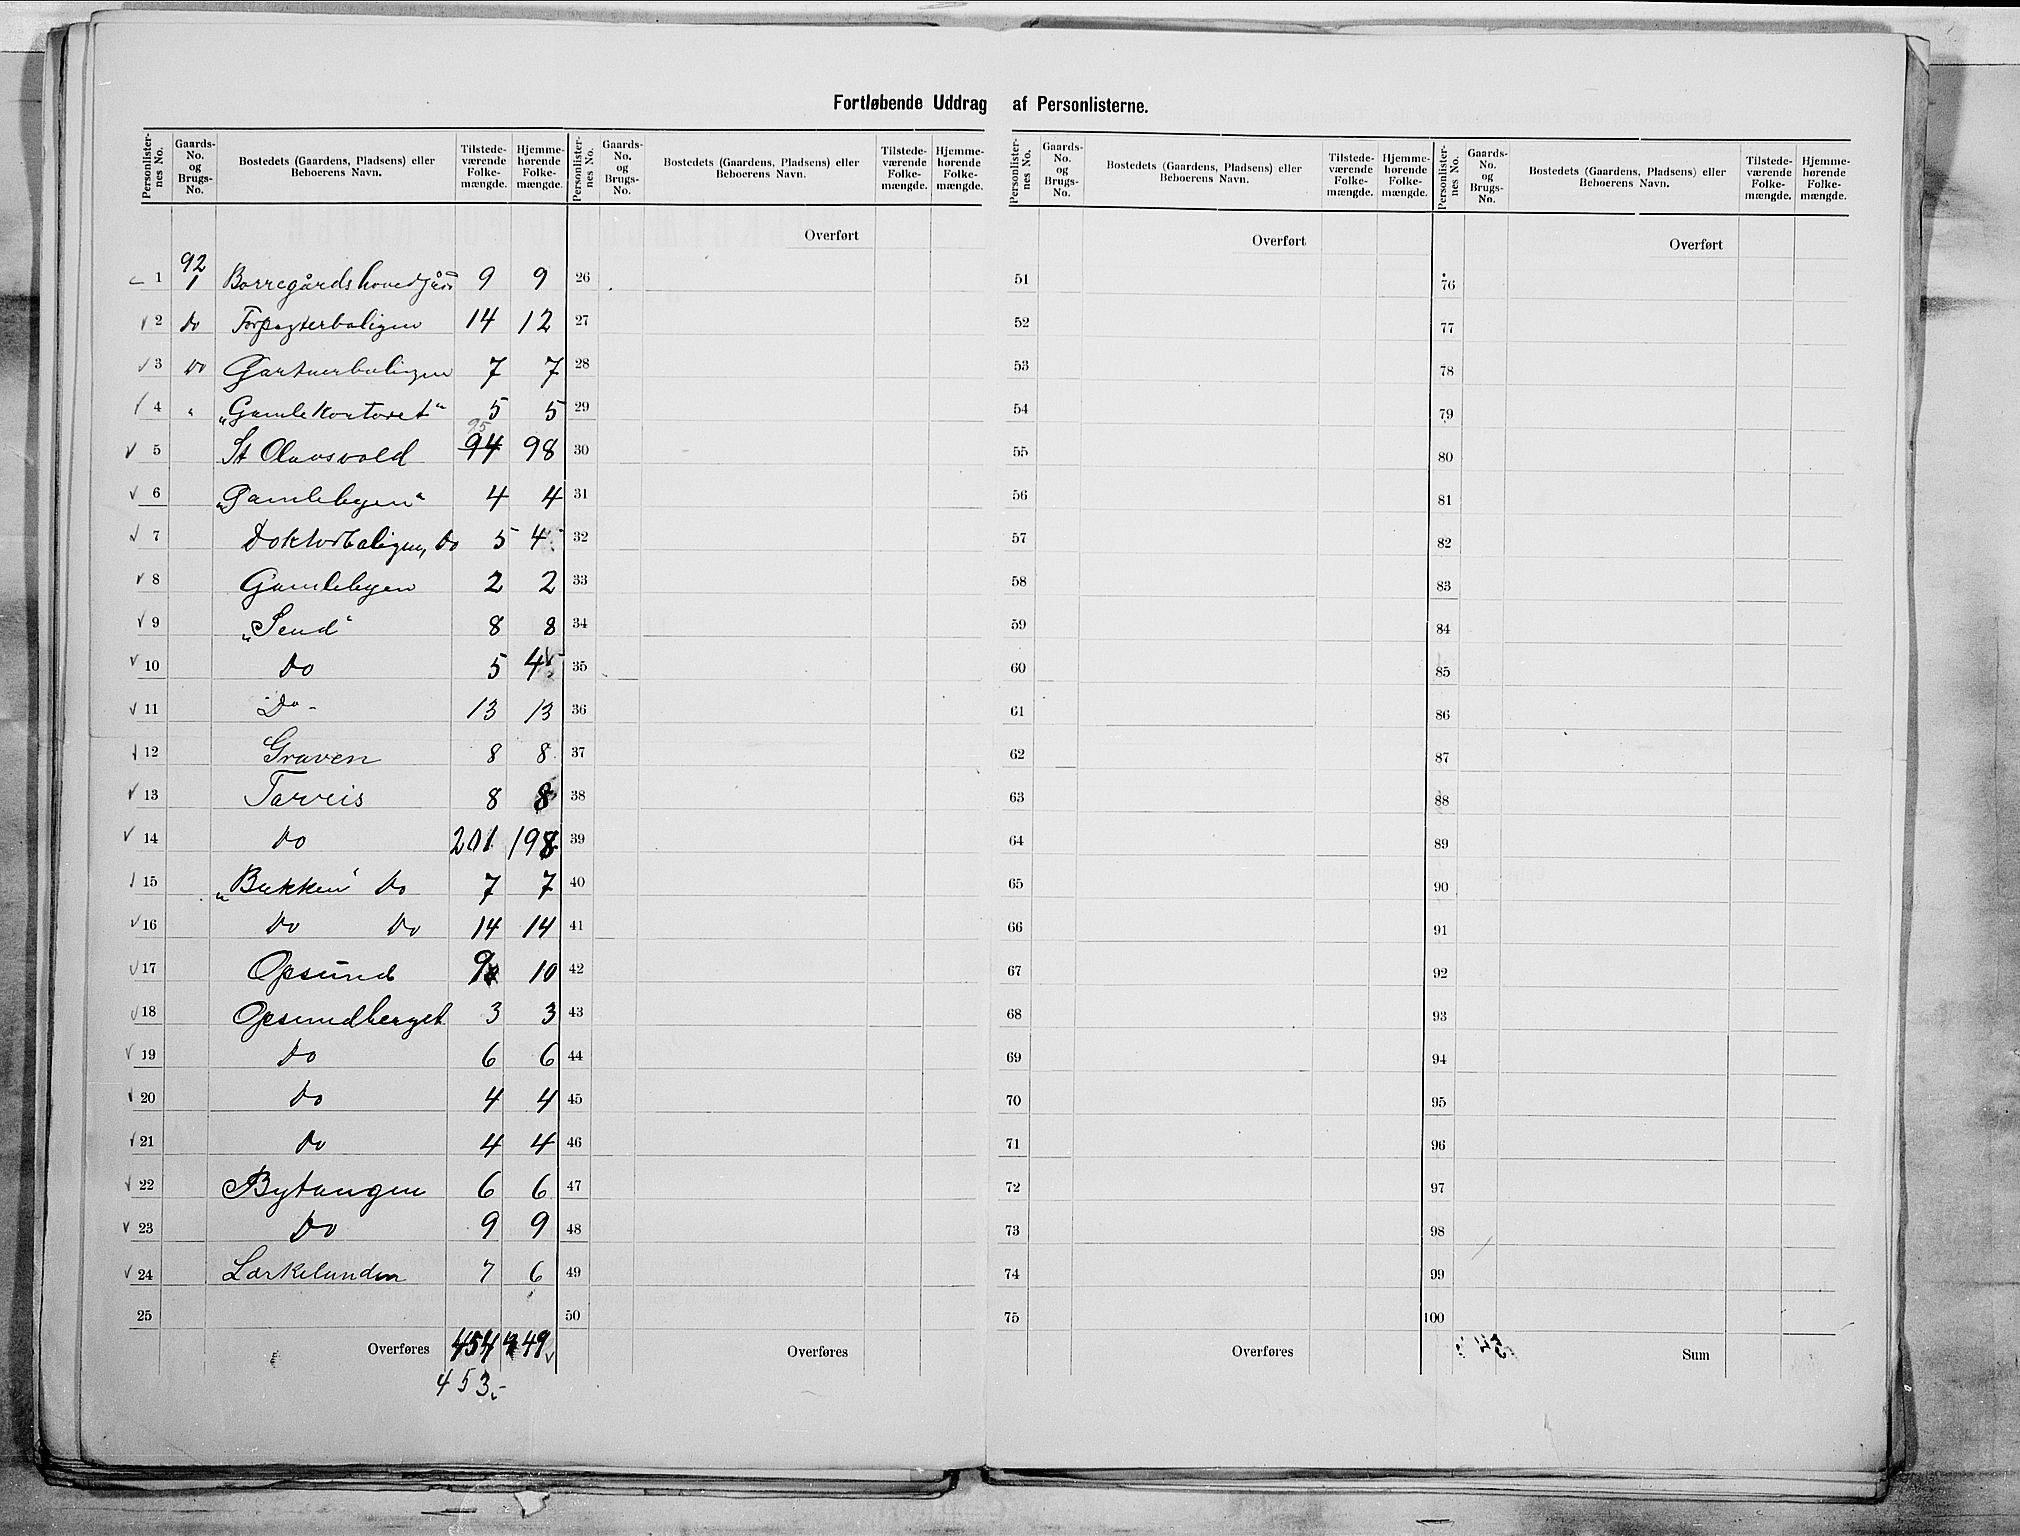 Fortløbende Uddrag af Personlisterne.
Personlister- nes No. | Gaards- No. og Brugs- No. | Bostedets (Gaardens, Pladsens) eller Beboerens Navn. | Tilstede- værende Folke- mængde. | Hjemme- hørende Folke- mængde. | Personlister- nes No. | Gaards- No. og Brugs- No. | Bostedets (Gaardens, Pladsens) eller Beboerens Navn. | Tilstede- værende Folke- mængde. | Hjemme- hørende Folke- mængde. | Personlister- nes No. | Gaards- No. og Brugs- No. | Bostedets (Gaardens, Pladsens) eller Beboerens Navn. | Tilstede- værende Folke- mængde. | Hjemme- hørende Folke- mængde. | Personlister- nes No. | Gaards- No. og Brugs- No. | Bostedets (Gaardens, Pladsens) eller Beboerens Navn. | Tilstede- værende Folke- mængde. | Hjemme- hørende Folke- mængde.
Overført Overført Overført
1 92 1 Borregårds hovedgård 9 9 26 51 76
2 Do Forpagterboligen 14 12 27 52 77
3 Do Gartnerboligen 7 7 28 53 78
4 " „Gamle Kontoret" 5 5 29 54 79
5 St Olavsvold 94 95 98 30 55 80
6 „Gamlebyen" 4 4 31 56 81
7 Doktorboligen, Do 5 4 32 57 82
8 Gamlebyen 2 2 33 58 83
9 „Send" 8 8 34 59 84
10 Do 5 4 35 60 85
11 Do - 13 13 36 61 86
12 Graven 8 8 37 62 87
13 Tarveis 8 8 38 63 88
14 Do 201 198 39 64 89
15 „Bakken" Do 7 7 40 65 90
16 Do Do 14 14 41 66 91
17 Opsund 9 10 42 67 92
18 Opsundberget 3 3 43 68 93
19 Do 6 6 44 69 94
20 Do 4 4 45 70 95
21 Do 4 4 46 71 96
22 Bytangen 6 6 47 72 97
23 Do 9 9 48 73 98
24 Lærkelunden 7 6 49 74 99
25 50 75 100
Overføres 454 449 Overføres Overføres Sum
453.-